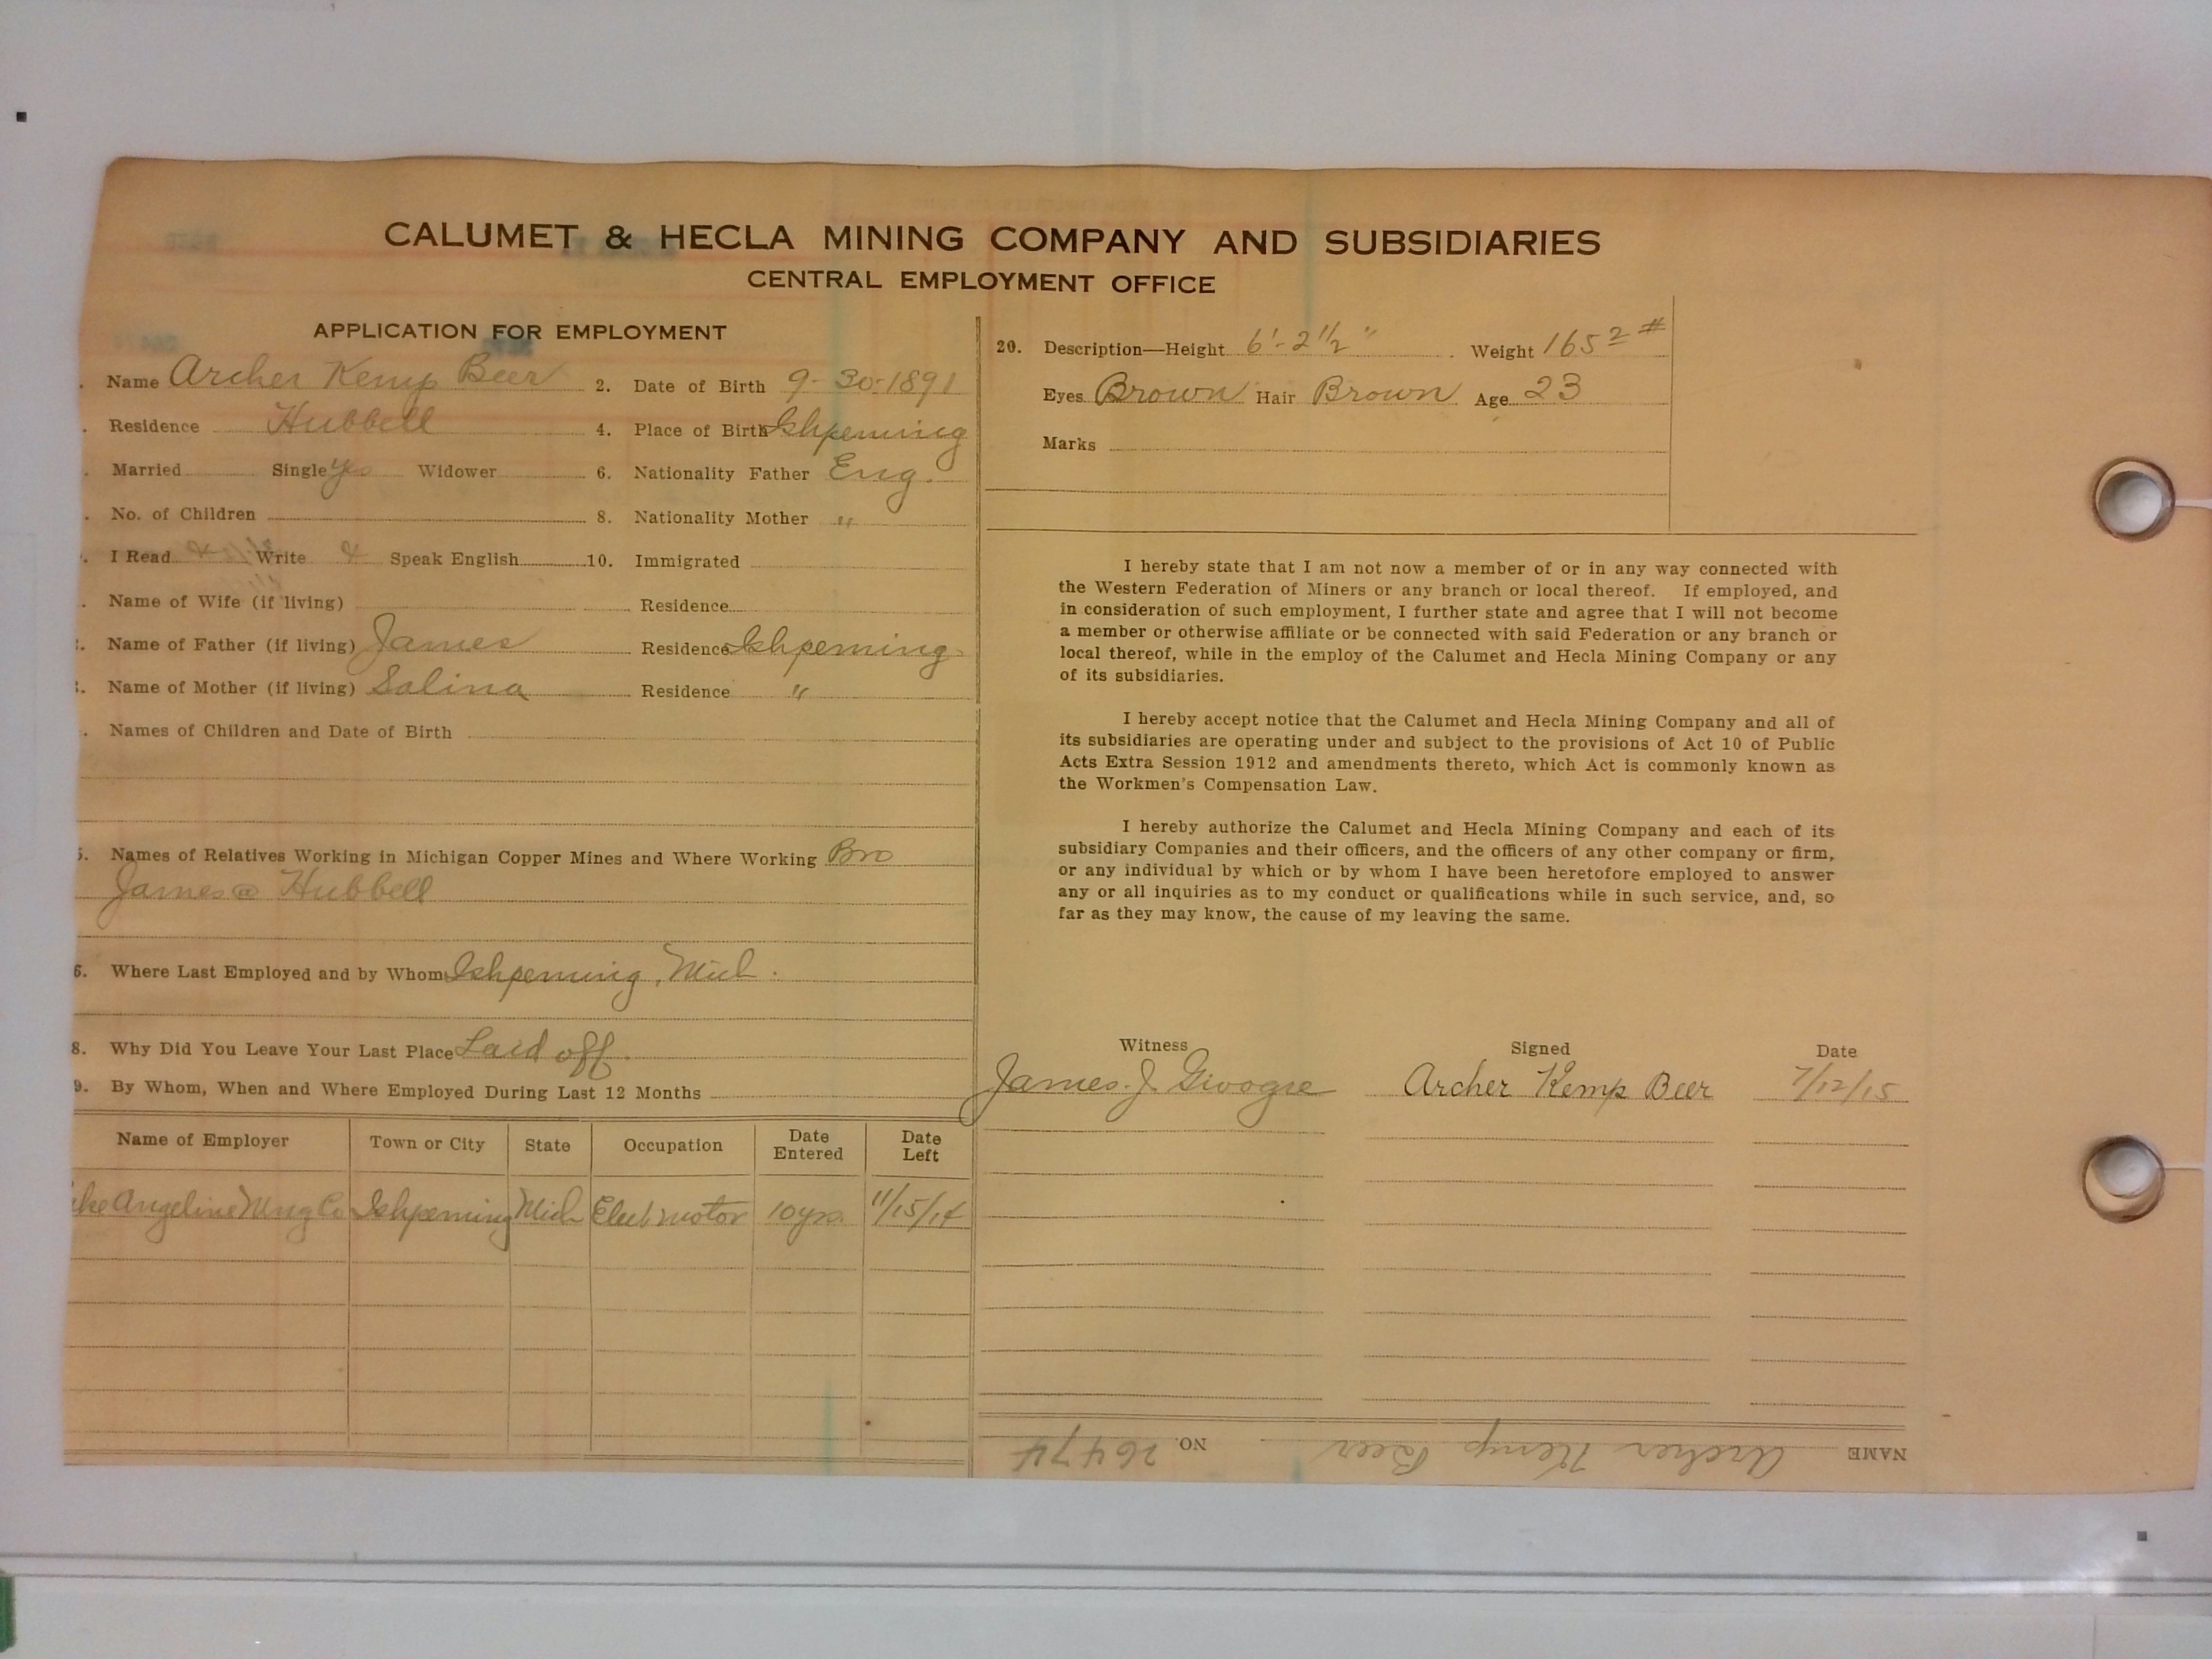 CALUMET & HECLA MINING COMPANY AND SUBSIDIARIES
CENTRAL EMPLOYMENT OFFICE
APPLICATION FOR EMPLOYMENT
. Name Archer Kemp Beer 2. Date of Birth 9-30-1891
. Residence Hubbell 4. Place of Birth Ishpeming
. Married Single yes Widower 6. Nationality Father Eng.
. No. of Children 8. Nationality Mother "
. I Read & Write & Speak English 10. Immigrated
. Name of Wife (if living) Residence
. Name of Father (if living) James Residence Ishpeming
. Name of Mother (if living) Salina Residence "
. Names of Children and Date of Birth
5. Names of Relatives Working in Michigan Copper Mines and Where Working Bro
James @ Hubbell
6. Where Last Employed and by Whom Ishpeming, Mich.
8. Why Did You Leave Your Last Place Laid off.
9. By Whom, When and Where Employed During Last 12 Months
Name of Employer Town or City State Occupation Date Entered Date Left
ke Angeline Mng Co Ishpeming Mich Elect motor 10 yrs. 11/15/14
20. Description—Height 6'-2 1/2" Weight 165 #
Eyes Brown Hair Brown Age 23
Marks
I hereby state that I am not now a member of or in any way connected with
the Western Federation of Miners or any branch or local thereof. If employed, and
in consideration of such employment, I further state and agree that I will not become
a member or otherwise affiliate or be connected with said Federation or any branch or
local thereof, while in the employ of the Calumet and Hecla Mining Company or any
of its subsidiaries.
I hereby accept notice that the Calumet and Hecla Mining Company and all of
its subsidiaries are operating under and subject to the provisions of Act 10 of Public
Acts Extra Session 1912 and amendments thereto, which Act is commonly known as
the Workmen's Compensation Law.
I hereby authorize the Calumet and Hecla Mining Company and each of its
subsidiary Companies and their officers, and the officers of any other company or firm,
or any individual by which or by whom I have been heretofore employed to answer
any or all inquiries as to my conduct or qualifications while in such service, and, so
far as they may know, the cause of my leaving the same.
Witness Signed Date
James. J. Archer Kemp Beer 7/12/15
NAME Archer Kemp Beer NO. 26474